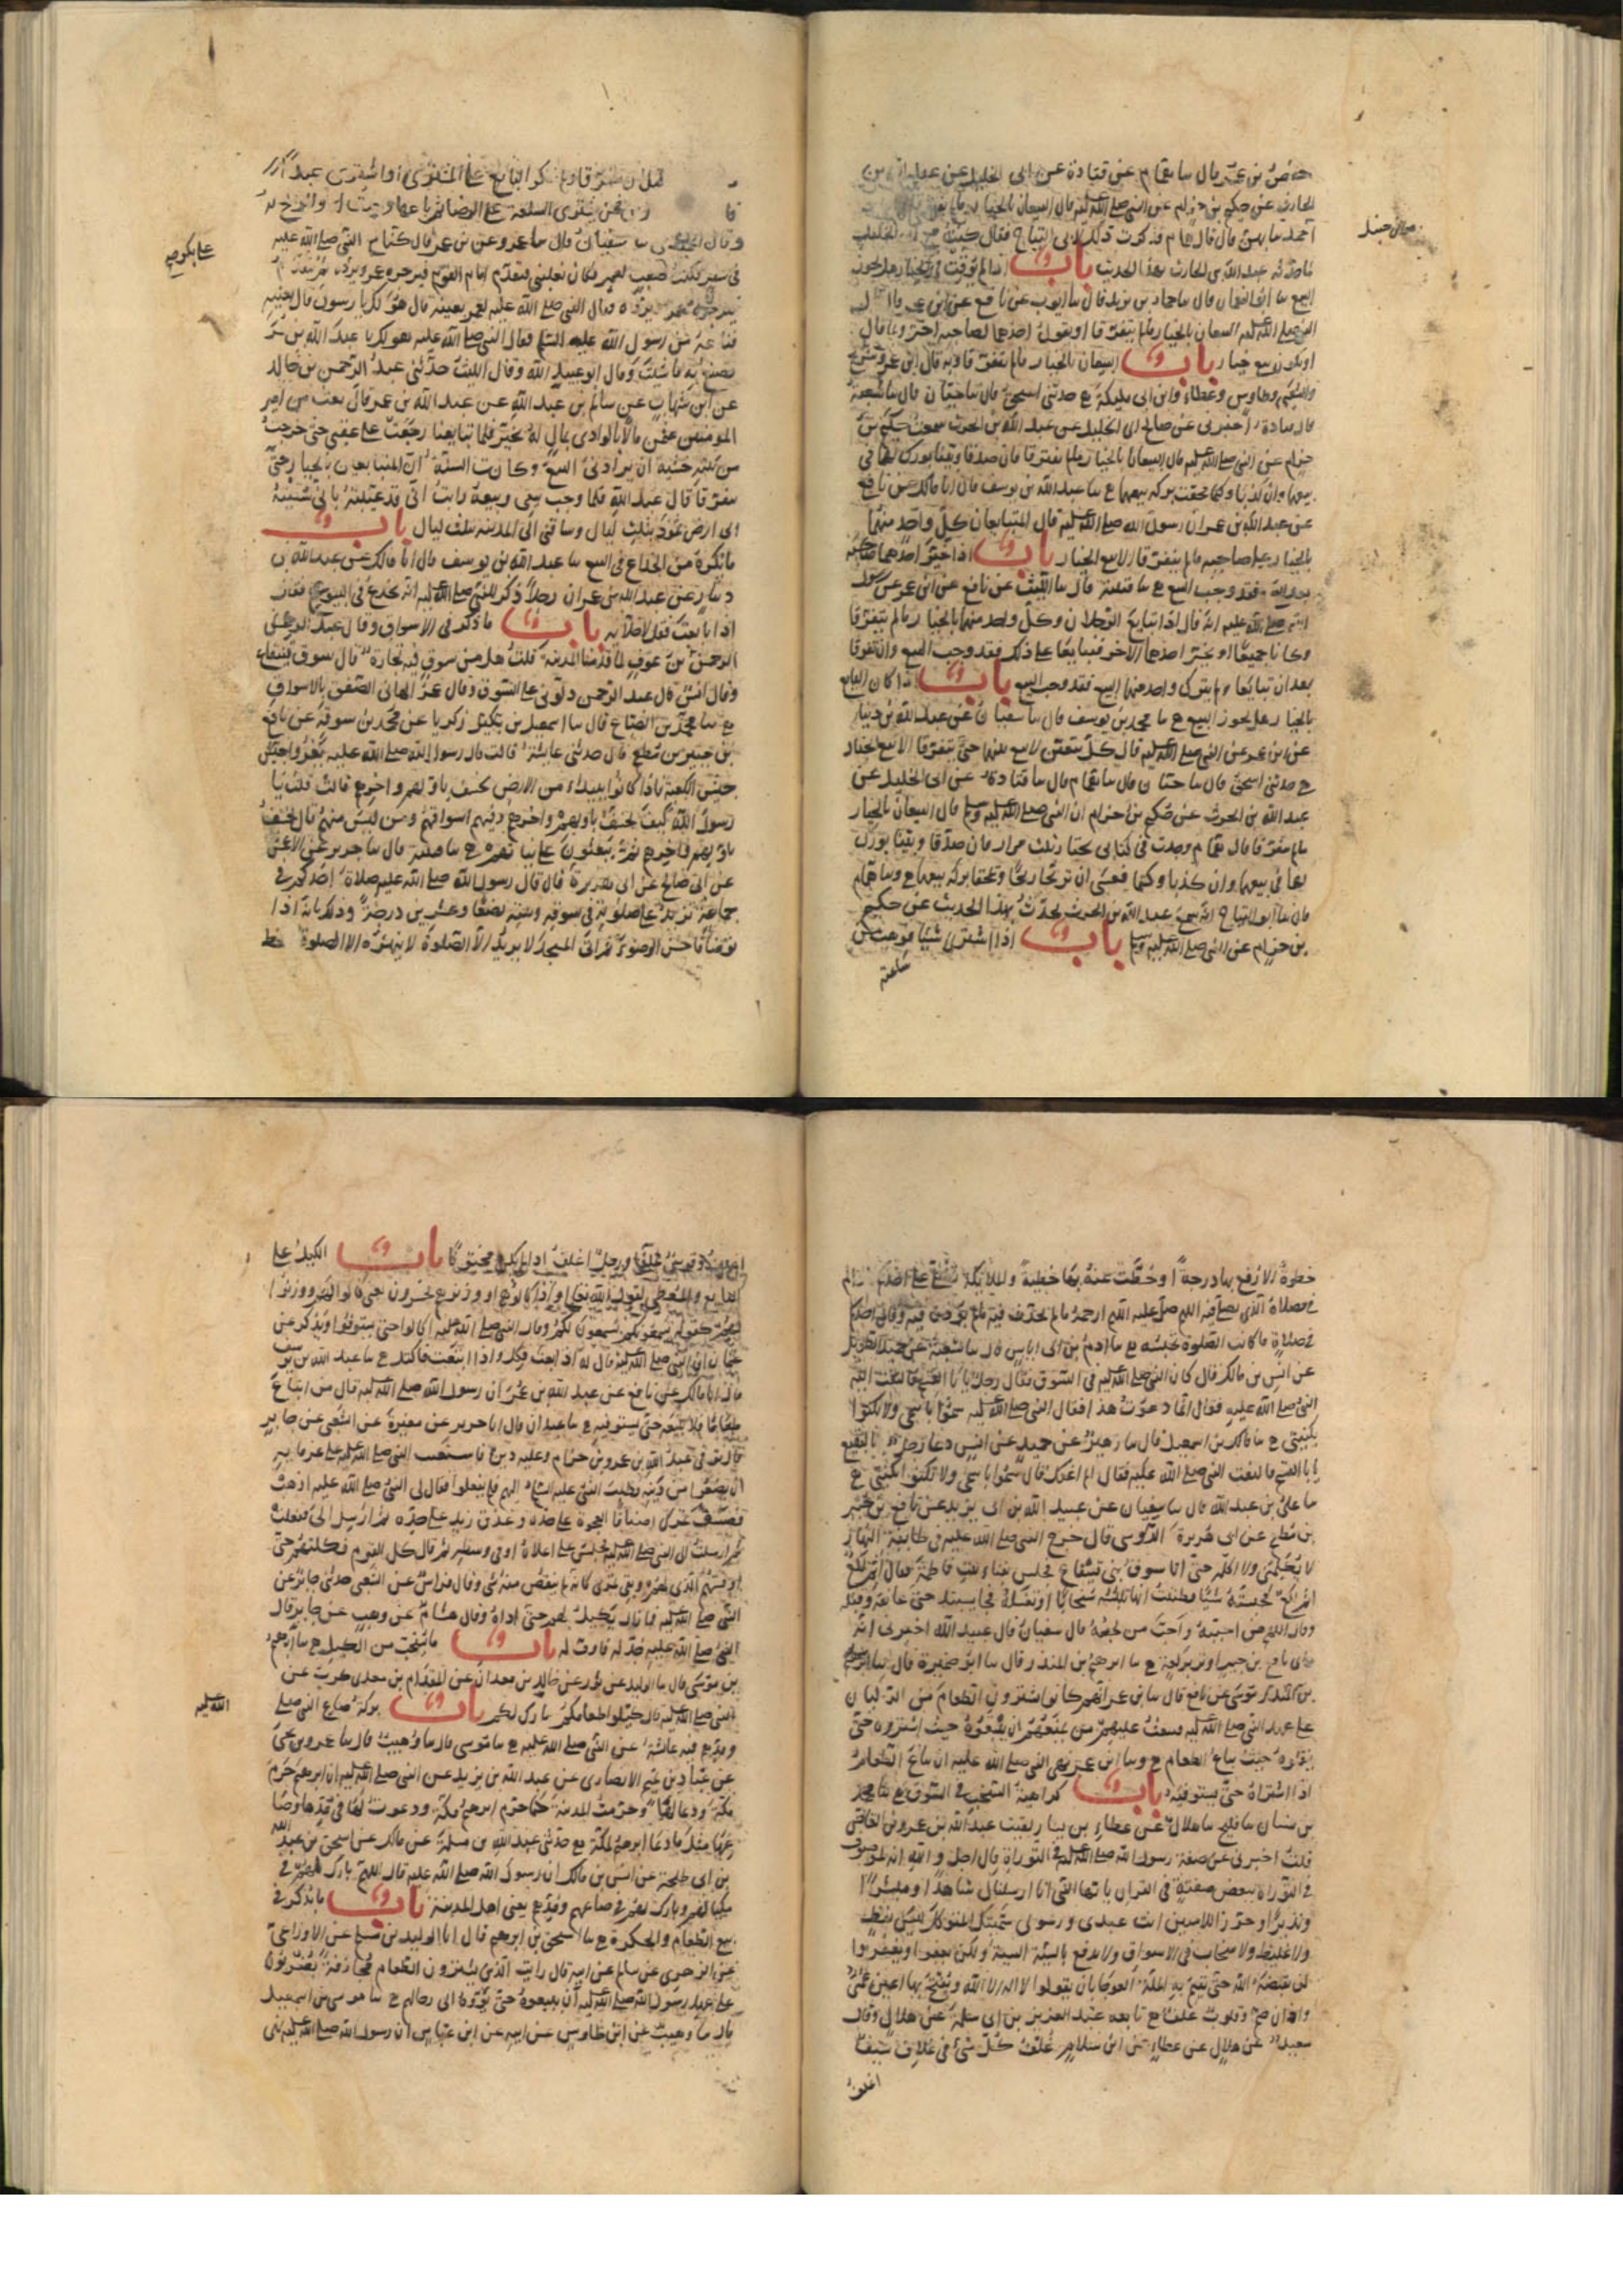 حفص بن عمر قال سا همام عن قتادة عن ابى الخليل عن عبد الله بن
الحارث عن حكيم بن حزام عن النبى صلى الله عليه قال البيعان بالخيار ما لم
احمد سا بهز قال قال همام فذكرت ذلك لابى التياح فقال كنت مع ابى الخليل
لما حدثه عبد الله بن الحارث بهذا الحديث باب اذا لم يوقت فى الخيار هل يجوز
البيع سا ابو النعمان قال سا حماد بن زيد قال سا ايوب عن نافع عن ابن عمر قال
النبى صلى الله عليه البيعان بالخيار ما لم يتفرقا او يقول احدهما لصاحبه اختر وربما قال
او يكون بيع خيار باب البيعان بالخيار ما لم يتفرقا وبه قال ابن عمر وشريح
والشعبى وطاوس وعطاء وابن ابى مليكة ح حدثنى اسحق قال سا حبان قال سا شعبة
قال قتادة اخبرنى عن صالح ابى الخليل عن عبد الله بن الحرث سمعت حكيم بن
حزام عن النبى صلى الله عليه قال البيعان بالخيار ما لم يتفرقا فان صدقا وبينا بورك لهما فى
بيعهما وان كذبا وكتما محقت بركة بيعهما ح سا عبد الله بن يوسف قال انا مالك عن نافع
عن عبد الله بن عمر ان رسول الله صلى الله عليه قال المتبايعان كل واحد منهما
بالخيار على صاحبه ما لم يتفرقا الا بيع الخيار باب اذا خير احدهما صاحبه
بعد البيع فقد وجب البيع ح سا قتيبة قال سا الليث عن نافع عن ابن عمر عن رسول
الله صلى الله عليه انه قال اذا تبايع الرجلان فكل واحد منهما بالخيار ما لم يتفرقا
وكانا جميعا او يخير احدهما الاخر فتبايعا على ذلك فقد وجب البيع وان تفرقا
بعد ان تبايعا ولم يترك واحد منهما البيع فقد وجب البيع باب اذا كان البايع
بالخيار هل يجوز البيع ح سا محمد بن يوسف قال سا سفيان عن عبد الله بن دينار
عن ابن عمر عن النبى صلى الله عليه قال كل بيعين لا بيع بينهما حتى يتفرقا الا بيع الخيار
ح حدثنى اسحق قال سا حبان قال سا همام قال سا قتادة عن ابى الخليل عن
عبد الله بن الحرث عن حكيم بن حزام ان النبى صلى الله عليه وسلم قال البيعان بالخيار
ما لم يتفرقا قال همام وجدت فى كتابى يختار ثلث مرار فان صدقا وبينا بورك
لهما فى بيعهما وان كذبا وكتما فعسى ان يربحا ربحا ويمحقا بركة بيعهما ح وسا همام
قال سا ابو التياح انه سمع عبد الله بن الحرث يحدث بهذا الحديث عن حكيم
بن حزام عن النبى صلى الله عليه وسلم باب اذا اشترى شيئا فوهب من
ساعته
قبل ان يتفرقا ولم ينكر البايع على المشترى او اشترى عبدا
وقال الحميدى سا سفيان قال سا عمرو عن بن عمر قال كنا مع النبى صلى الله عليه
فى سفر فكنت على بكر صعب لعمر فكان يغلبنى فيتقدم امام القوم فيزجره عمر ويرده ثم يتقدم
فيزجره عمر ويرده فقال النبى صلى الله عليه لعمر بعنيه قال هو لك يا رسول قال بعنيه
فباعه من رسول الله عليه السلم فقال النبى صلى الله عليه هو لك يا عبد الله بن عمر
تصنع به ما شئت وقال ابو عبيد الله وقال الليث حدثنى عبد الرحمن بن خالد
عن ابن شهاب عن سالم بن عبد الله عن عبد الله بن عمر قال بعت من امير
المومنين عثمن مالا بالوادى بمال له بخيبر فلما تبايعنا رجعت على عقبى حتى خرجت
من بيته خشية ان يرادنى البيع وكانت السنة ان المتبايعان بالخيار حتى
يتفرقا قال عبد الله فلما وجب بيعى وبيعه رايت انى قد غبنته بانى سقته
الى ارض ثمود بثلث ليال وساقنى الى المدينة بثلث ليال باب
ما يكره من الخداع فى البيع سا عبد الله بن يوسف قال انا مالك عن عبد الله بن
دينار عن عبد الله بن عمر ان رجلا ذكر للنبى صلى الله عليه انه يخدع فى البيوع فقال
اذا بايعت فقل لا خلابة باب ما ذكر فى الاسواق وقال عبد الرحمن
الرحمن بن عوف لما قدمنا المدينة قلت هل من سوق فيه تجارة قال سوق قينقاع
وقال انس قال عبد الرحمن دلونى على السوق وقال عمر الهانى الصفق بالاسواق
ح سا محمد بن الصباح قال سا اسمعيل بن زكريا عن محمد بن سوقة عن نافع
بن جبير بن مطعم قال حدثتنى عايشة قالت قال رسول الله صلى الله عليه يغزو جيش
الكعبة فاذا كانوا ببيداء من الارض يخسف باولهم واخرهم قالت قلت يا
رسول الله كيف يخسف باولهم واخرهم وفيهم اسواقهم ومن ليس منهم قال يخسف
باولهم واخرهم ثم يبعثون على نياتهم ح سا قتيبة قال سا جرير عن الاعمش
عن ابى صالح عن ابى هريرة قال قال رسول الله صلى الله عليه صلاة احدكم فى
جماعة تزيد على صلوته فى سوقه وبيته بضعا وعشرين درجة وذلك بانه اذا
توضا فاحسن الوضوء ثم اتى المسجد لا يريد الا الصلوة لا ينهزه الا الصلوة
خطوة الا رفع بها درجة او حطت عنه بها خطية والملايكة تصلى على احدكم ما دام
فى مصلاه الذى يصلى فيه اللهم صل عليه اللهم ارحمه ما لم يحدث فيه ما لم يوذ فيه وقال احدكم
فى صلاة ما كانت الصلوة تحبسه ح سا ادم بن ابى اياس قال سا شعبة عن حميد الطويل
عن انس بن مالك قال كان النبى صلى الله عليه فى السوق فقال رجل يا ابا القسم فالتفت اليه
النبى صلى الله عليه فقال انما دعوت هذا فقال النبى صلى الله عليه سموا باسمى ولا تكنوا
بكنيتى ح سا مالك بن اسمعيل قال سا زهير عن حميد عن انس دعا رجل بالبقيع
يا ابا القسم فالتفت النبى صلى الله عليه فقال لم اعنك قال سموا باسمى ولا تكنوا بكنيتى ح
سا على بن عبد الله قال سا سفيان عن عبيد الله بن ابى يزيد عن نافع بن جبير
بن مطعم عن ابى هريرة الدوسى قال خرج النبى صلى الله عليه فى طايفة النهار
لا يكلمنى ولا اكلمه حتى اتا سوق بنى قينقاع فجلس بفناء بيت فاطمة فقال اثم لكع
اثم لكع فحبسته شيئا فظننت انها تلبسه سخابا او تغسله فجا يشتد حتى عانقه وقبله
وقال اللهم احببه واحب من يحبه قال سفيان قال عبيد الله اخبرنى انه
راى نافع بن جبير اوتر بركعة ح سا ابرهيم بن المنذر قال سا ابو ضمرة قال سا موسى
عن نافع قال سا بن عمر انهم كانوا يشترون الطعام من الركبان
على عهد النبى صلى الله عليه فيبعث عليهم من يمنعهم ان يبيعوه حيث اشتروه حتى
ينقلوه حيث يباع الطعام ح وسا ابن عمر نهى النبى صلى الله عليه ان يباع الطعام
اذا اشتراه حتى يستوفيه باب كراهية السخب فى السوق ح سا محمد
بن سنان سا فليح سا هلال عن عطاء بن يسار لقيت عبد الله بن عمرو بن العاص
قلت اخبرنى عن صفة رسول الله صلى الله عليه فى التوراة قال اجل والله انه لموصوف
فى التوراة ببعض صفته فى القران يا ايها النبى انا ارسلناك شاهدا ومبشرا
ونذيرا وحرزا للاميين انت عبدى ورسولى سميتك المتوكل ليس بفظ
ولا غليظ ولا سخاب فى الاسواق ولا يدفع بالسيئة السيئة ولكن يعفوا ويغفر
لن يقبضه الله حتى يقيم به الملة العوجا بان يقولوا لا اله الا الله ويفتح بها اعين عمى
واذان صم وقلوب غلف ح تابعه عبد العزيز بن ابى سلمة عن هلال وقال
سعيد عن هلال عن عطاء عن ابن سلام غلف كل شئ فى غلاف سيف
اغلف
اغلف وقوس غلفا ورجل اغلف اذا لم يكن مختونا باب الكيل على
البايع والمعطى لقول الله تعالى واذا كالوهم او وزنوهم يخسرون يعنى كالوا لهم ووزنوا
لهم كقوله يسمعونكم يسمعون لكم وقال النبى صلى الله عليه اكتالوا حتى تستوفوا ويذكر عن
عثمان ان النبى صلى الله عليه قال له اذا بعت فكل واذا ابتعت فاكتل ح سا عبد الله بن يوسف
قال انا مالك عن نافع عن عبد الله بن عمر ان رسول الله صلى الله عليه قال من ابتاع
طعاما فلا يبيعه حتى يستوفيه ح سا عبدان قال انا جرير عن مغيرة عن الشعبى عن جابر
قال توفى عبد الله بن عمرو بن حزام وعليه دين فاستعنت النبى صلى الله عليه على غرمايه
ان يضعوا من دينه فطلب النبى عليه السلم اليهم فلم يفعلوا فقال لى النبى صلى الله عليه اذهب
فصنف تمرك اصنافا العجوة على حدة وعذق زيد على حدة ثم ارسل الى ففعلت
ثم ارسلت الى النبى صلى الله عليه فجلس على اعلاه او فى وسطه ثم قال كل للقوم فكلتهم حتى
اوفيتهم الذى لهم وبقى تمرى كانه لم ينقص منه شى وقال فراس عن الشعبى حدثنى جابر عن
النبى صلى الله عليه فما زال يكيل لهم حتى اداه وقال هشام عن وهب عن جابر قال
النبى صلى الله عليه جذ له فاوف له باب ما يستحب من الكيل ح سا ابرهيم
بن موسى قال سا الوليد عن ثور عن خالد بن معدان عن المقدام بن معدى كرب عن
النبى صلى الله عليه قال كيلوا طعامكم يبارك لكم باب بركة صاع النبى صلى
ومدهم فيه عايشة عن النبى صلى الله عليه ح سا موسى قال سا وهيب قال سا عمرو بن يحيى
عن عباد بن تميم الانصارى عن عبد الله بن زيد عن النبى صلى الله عليه ان ابرهيم حرم
مكة ودعا لها وحرمت المدينة كما حرم ابرهيم مكة ودعوت لها فى مدها وصا
عها مثل ما دعا ابرهيم لمكة ح حدثنى عبد الله بن مسلمة عن مالك عن اسحق بن عبد الله
بن ابى طلحة عن انس بن مالك ان رسول الله صلى الله عليه قال اللهم بارك لهم فى
مكيالهم وبارك لهم فى صاعهم ومدهم يعنى اهل المدينة باب ما يذكر فى
بيع الطعام والحكرة ح سا اسحق بن ابرهيم قال انا الوليد بن مسلم عن الاوزاعى
عن الزهرى عن سالم عن ابيه قال رايت الذين يشترون الطعام مجازفة يضربون
على عهد رسول الله صلى الله عليه ان يبيعوه حتى يؤووه الى رحالهم ح سا موسى بن اسمعيل
قال سا وهيب عن ابن طاوس عن ابيه عن ابن عباس ان رسول الله صلى الله عليه نهى